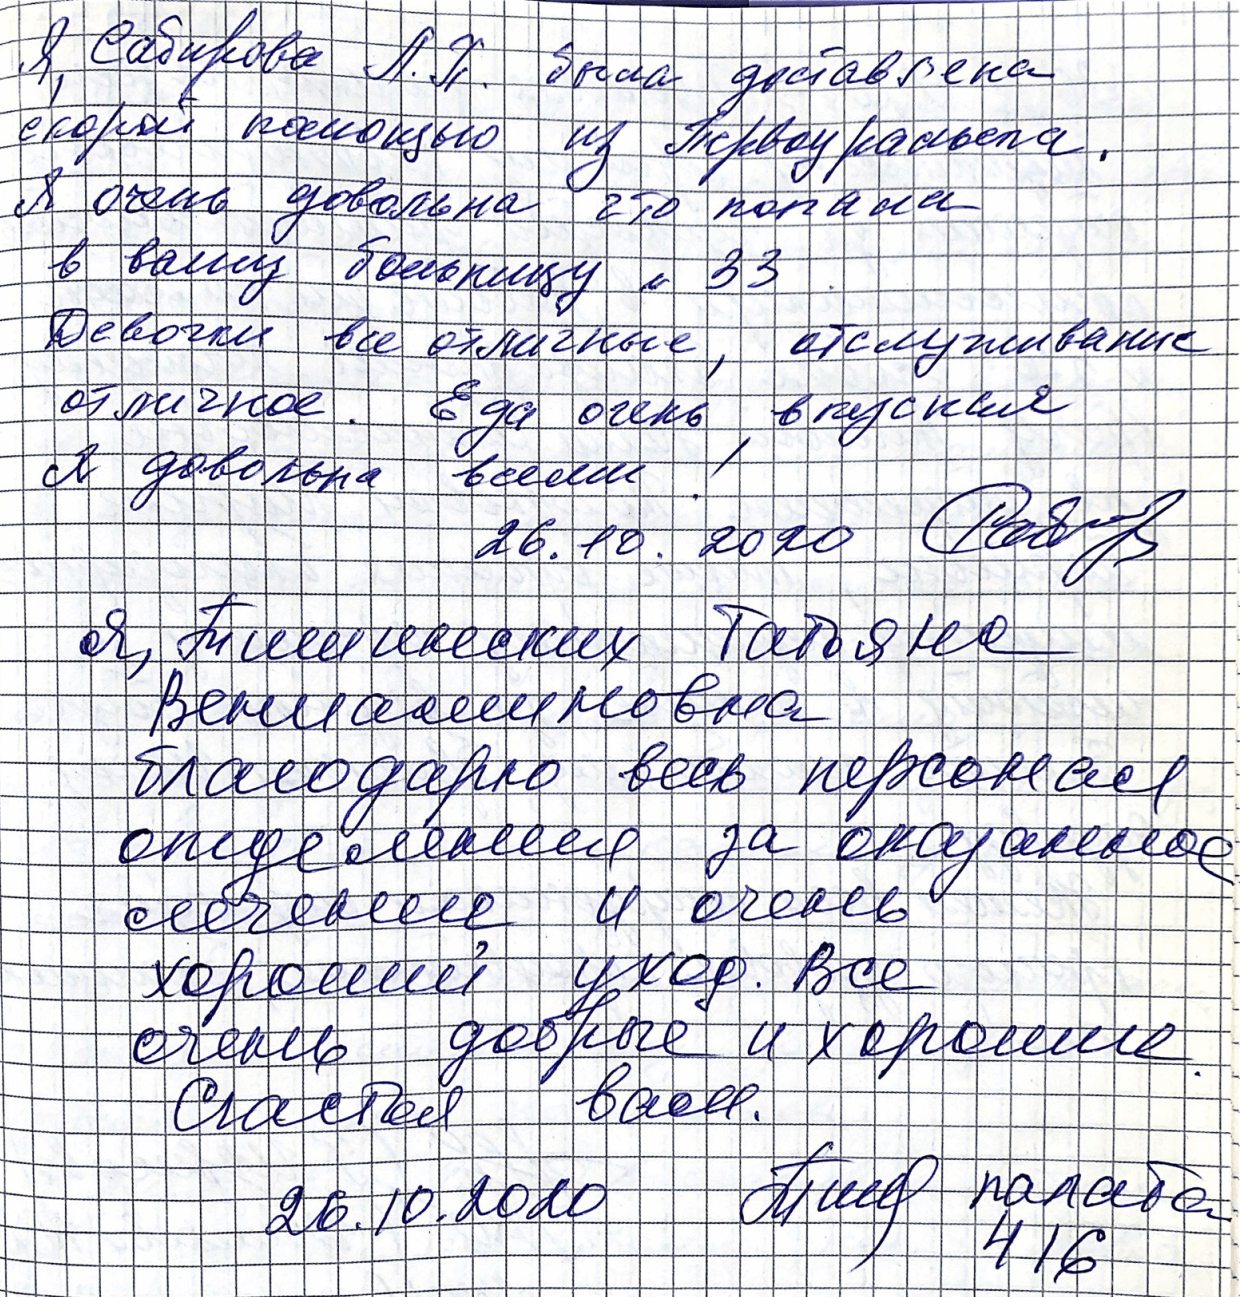 Я, Сабирова Л.П. была доставлена
скорой помощью из Первоуральска.
Я очень довольна что попала
в вашу больницу № 33
Девочки все отличные, отслуживание
отличное. Еда очень, впусная
Я довольна всеми!
26.10.2020
Я, Татьяна
Вениаминовна
благодарю весь персонал
отделения за оказанное
лечение и очень
хороший уход. Все
очень добрые и хорошие.
Счастья вам.
26.10.2020 палата
416